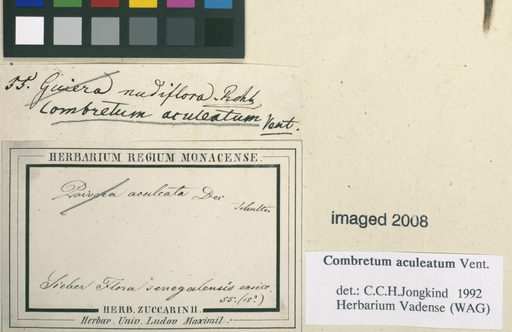 55. Guiera nudiflora. Rchb.
Combretum aculeatum Vent.
HERBARIUM REGIUM MONACENSE.
Poivrea aculeata Dec
Schultes
Sieber Flora senegalensis exsicc.
55. (15?)
HERB. ZUCCARINII.
Herbar. Univ. Ludov. Maximil.
imaged 2008
Combretum aculeatum Vent.
det.: C.C.H.Jongkind 1992
Herbarium Vadense (WAG)